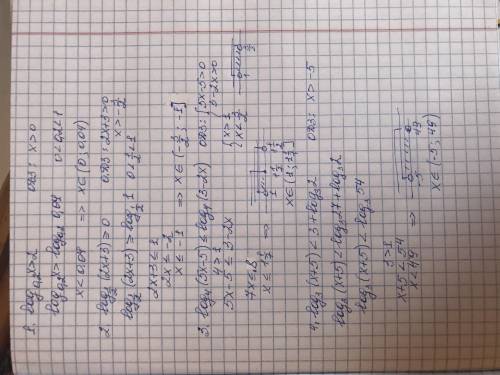 1. log₀,₂ x > 2 ОДЗ: x > 0
log₀,₂ x > log₀,₂ 0,04 0 < 0,2 < 1
x < 0,04 => x ∈ (0; 0,04)
2. log½ (2x+3) > 0 ОДЗ: 2x+3 > 0
log½ (2x+3) > log½ 1 0 < ½ < 1
2x+3 ≤ 1
2x ≤ -2
x ≤ -1 => -1]
3. log₄ (5x-5) ≤ log₄ (3-2x) ОДЗ: { 5x-5 > 0
3-2x > 0
4 > 1 { x > 1
5x-5 ≤ 3-2x
7x ≤ 8
x ≤ 1 1/7 =>
x ∈ (1; 1 1/7]
4. log₃ (x+5) < 3 + log₃ 2 ОДЗ: x > -5
log₃ (x+5) < log₃ 27 + log₃ 2
log₃ (x+5) < log₃ 54
3 > 1
x+5 < 54
x < 49 => -5 49
x ∈ (-5; 49)